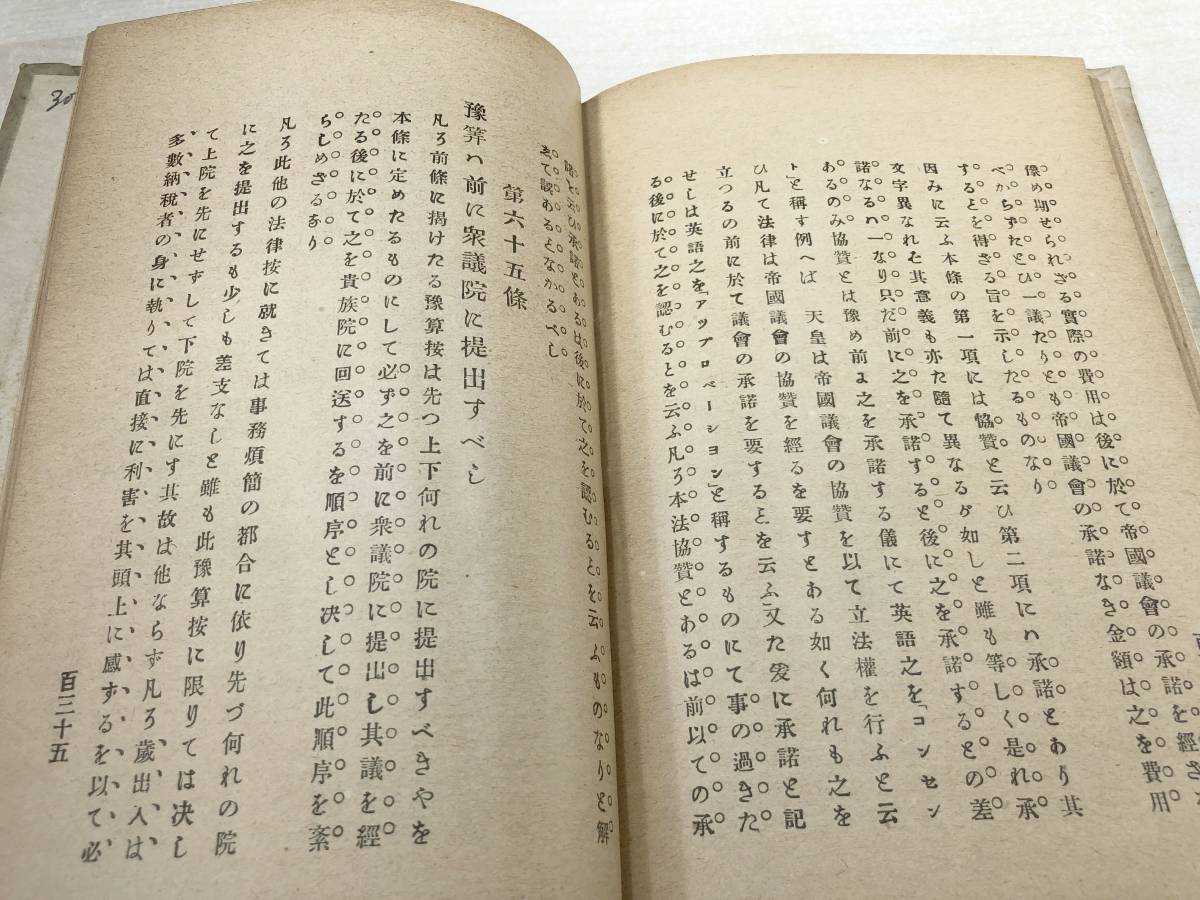 豫め期せられざる實際の費用は後に於て帝國議會の承諾を經ざ
べからずたとひ一議たりとも帝國議會の承諾なき金額は之を費用
することを得ざる旨を示したるものなり
因みに云ふ本條の第一項には協贊と云ひ第二項にハ承諾とあり其
文字異なれ𪜈其意義も亦た隨て異なるが如しと雖も等しく是れ承
諾なるハ一なり只だ前に之を承諾すると後に之を承諾するとの差
あるのみ協贊とは豫め前ょ之を承諾する儀にて英語之を「コンセン
ト」と稱す例へば 天皇は帝國議會の協贊を以て立法權を行ふと云
ひ凡て法律は帝國議會の協贊を經るを要すとある如く何れも之を
立つるの前に於て議會の承諾を要することを云ふ又た爰に承諾と記
せしは英語之を「アップロベーション」と稱するものにて事の過きた
る後に於て之を認むるとを云ふ凡ろ本法協贊とあるは前以ての承
諾と云ひ承諾とあるは後に於て之を認むるとを云ふものなりと解
ゑて誤あるとなかるべし
第六十五條
豫筭ハ前に衆議院に提出すべし
凡ろ前條に揭けたる豫算按は先つ上下何れの院に提出すべきやを
本條に定めたるものにして必ず之を前に衆議院に提出し其議を經
たる後に於て之を貴族院に回送するを順序とし决して此順序を紊
らしめざるなり
凡ろ此他の法律按に就きては事務煩簡の都合に依り先づ何れの院
に之を提出するも少しも差支なしと雖も此豫算按に限りては决し
て上院を先にせずして下院を先にす其故は他ならず凡ろ歲出入は
多數納税者の身に執りては直接に利害を其頭上に感ずるを以て必
百三十五
30